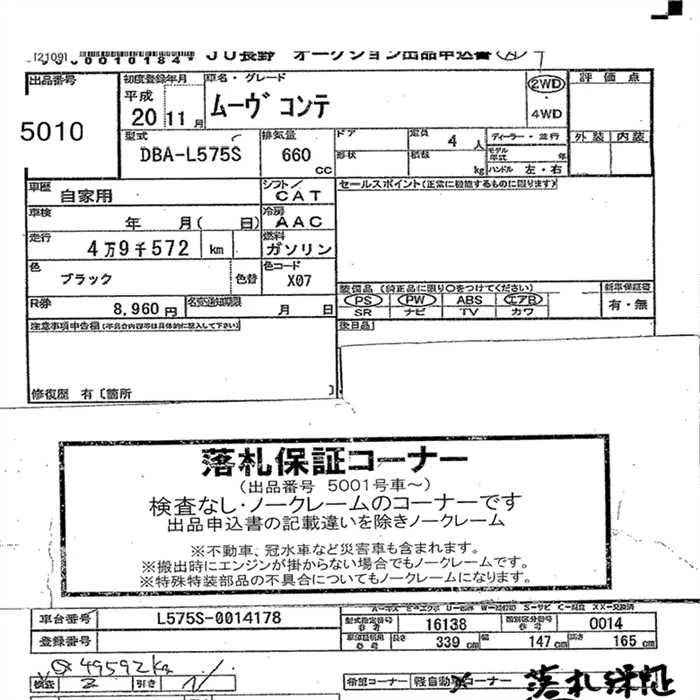 [2109]
0010184*
JU長野 オークション出品申込書
出品番号
5010
初度登録年月
平成
20 11 月
車名・グレード
ムーヴ コンテ
2WD
・
4WD
評価点
外装 内装
型式
DBA-L575S
排気量
660
cc
ドア
形状
定員
4 人
積載
kg
ディーラー・並行
モデル年式 年
ハンドル 左・右
車歴
自家用
シフト/
CAT
セールスポイント(正常に機能するものに限ります)
車検
年 月( 日)
冷房
AAC
走行
4万9千572 km
燃料
ガソリン
色
ブラック
色替
色コード
X07
R券
8,960 円
名変通知期限
月 日
装備品 (純正品に限り○をつけてください)
PS PW ABS エアB
SR ナビ TV カワ
新車保証書
有・無
後日品
注意事項申告欄(不具合内容等は具体的に記入して下さい)
修復歴 有〔箇所 〕
落札保証コーナー
(出品番号 5001号車～)
検査なし・ノークレームのコーナーです
出品申込書の記載違いを除きノークレーム
※不動車、冠水車など災害車も含まれます。
※搬出時にエンジンが掛からない場合でもノークレームです。
※特殊特装部品の不具合についてもノークレームになります。
車台番号
L575S-0014178
登録番号
型式指定番号
参考
16138
類別区分番号
参考
0014
長さ
339 cm
幅
147 cm
高さ
165 cm
49592km
検査
引き
希望コーナー
軽自動車コーナー
落札保証